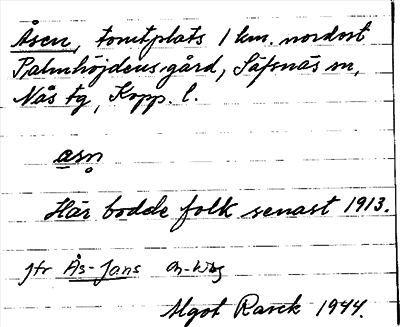 Åsen, tomtplats 1 km. nordost
Palmhöjdens gård, Säfsnäs sn,
Nås tg, Kopp. l.
åsn
Här bodde folk senast 1913.
jfr Ås-Jans
Algot Rarck 1944.